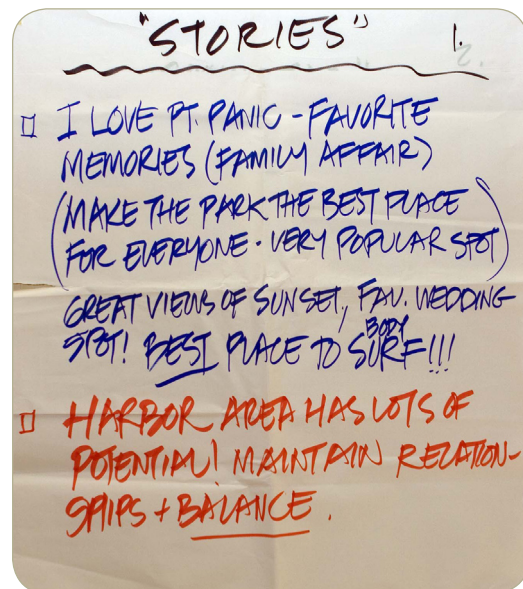 "STORIES" 1.
I LOVE PT. PANIC - FAVORITE
MEMORIES (FAMILY AFFAIR)
(MAKE THE PARK THE BEST PLACE
FOR EVERYONE - VERY POPULAR SPOT)
GREAT VIEWS OF SUNSET, FAV. WEDDING
SPOT! BEST PLACE TO BODY SURF!!!
HARBOR AREA HAS LOTS OF
POTENTIAL! MAINTAIN RELATION-
SHIPS + BALANCE.